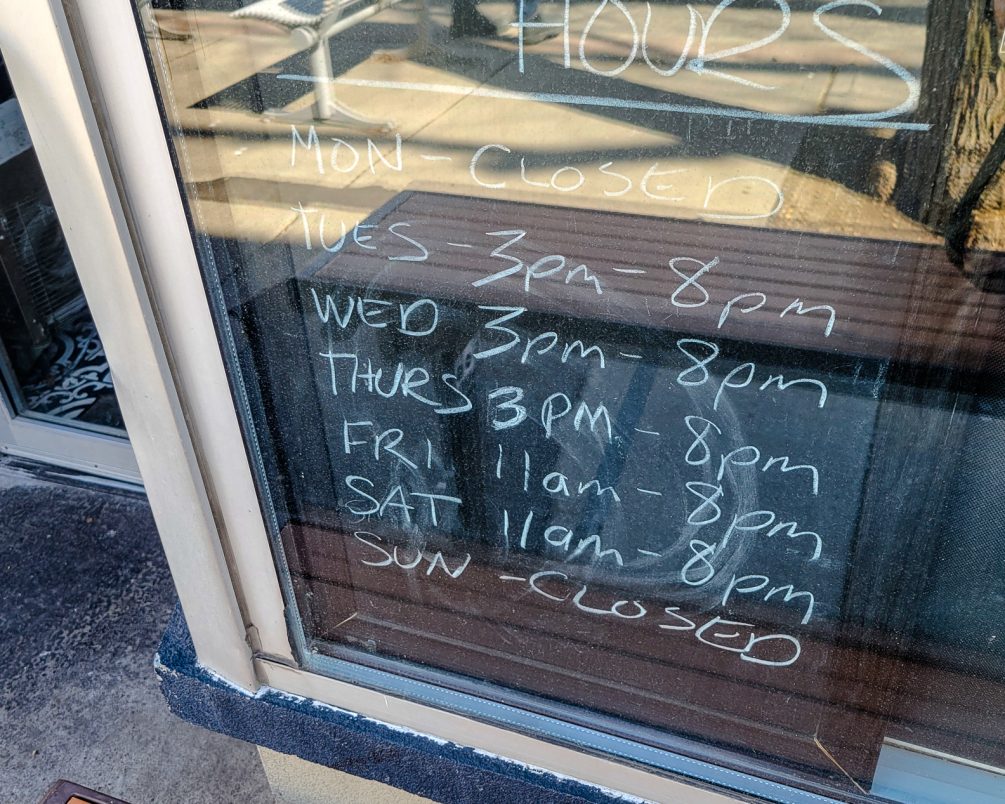 HOURS
MON - CLOSED
TUES - 3pm - 8pm
WED 3pm - 8pm
THURS 3PM - 8pm
FRI 11am - 8pm
SAT 11am - 8pm
SUN - CLOSED